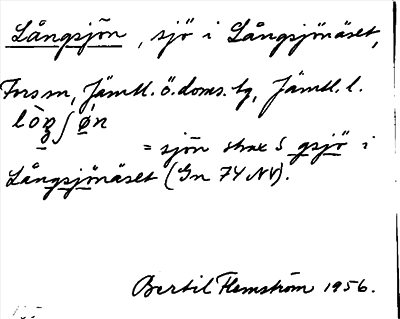 Långsjön, sjö i Långsjönäset,
Fors sn, Jämtl. ö. doms. tg, Jämtl. l.
lòŋʃøn
= sjön strax S gsjö i
Långsjönäset (Gn 74 NV).
Bertil Flemström 1956.